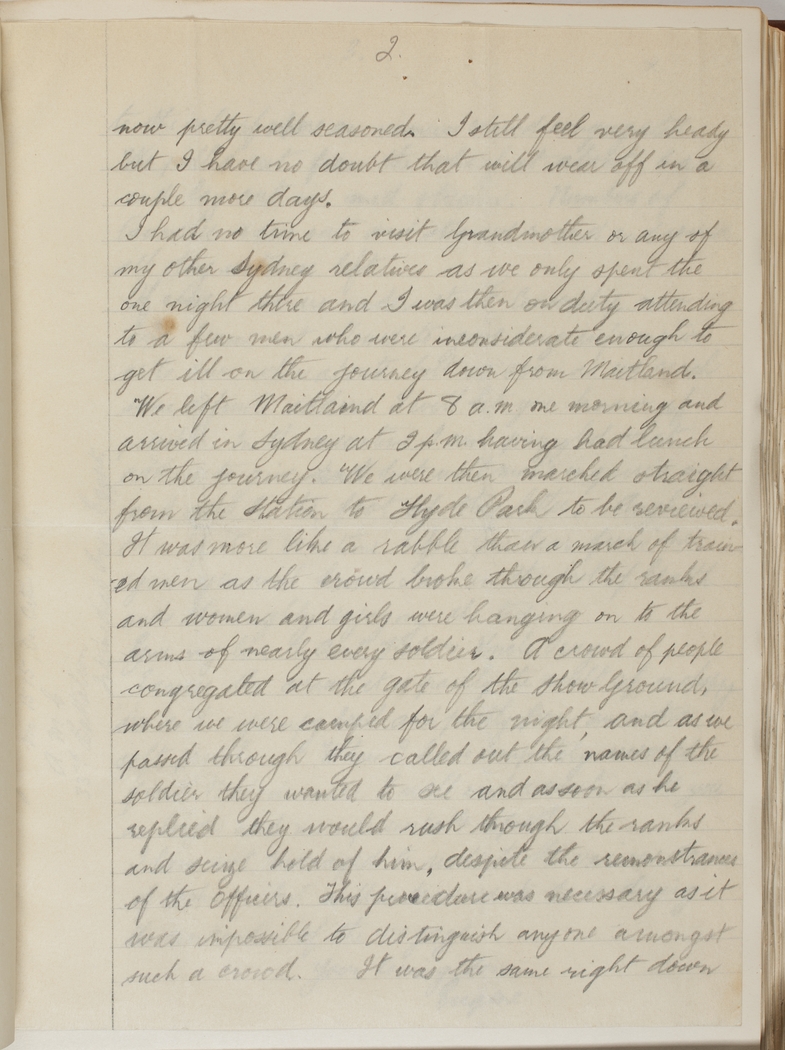 2.
now pretty well seasoned. I still feel very heady
but I have no doubt that will wear off in a
couple more days.
I had no time to visit Grandmother or any of
my other Sydney relatives as we only spent the
one night there and I was then on duty attending
to a few men who were inconsiderate enough to
get ill on the journey down from Maitland.
We left Maitlaind at 8 a.m. one morning and
arrived in Sydney at 2 p.m. having had lunch
on the journey. We were then marched straight
from the station to Hyde Park to be reviewed.
It was more like a rabble than a march of train-
-ed men as the crowd broke through the ranks
and women and girls were hanging on to the
arms of nearly every soldier. A crowd of people
congregated at the gate of the Show Ground,
where we were camped for the night, and as we
passed through they called out the names of the
soldier they wanted to see and as soon as he
replied they would rush through the ranks
and seize hold of him, despite the remonstrances
of the Officers. This procedure was necessary as it
was impossible to distinguish anyone amongst
such a crowd. It was the same right down